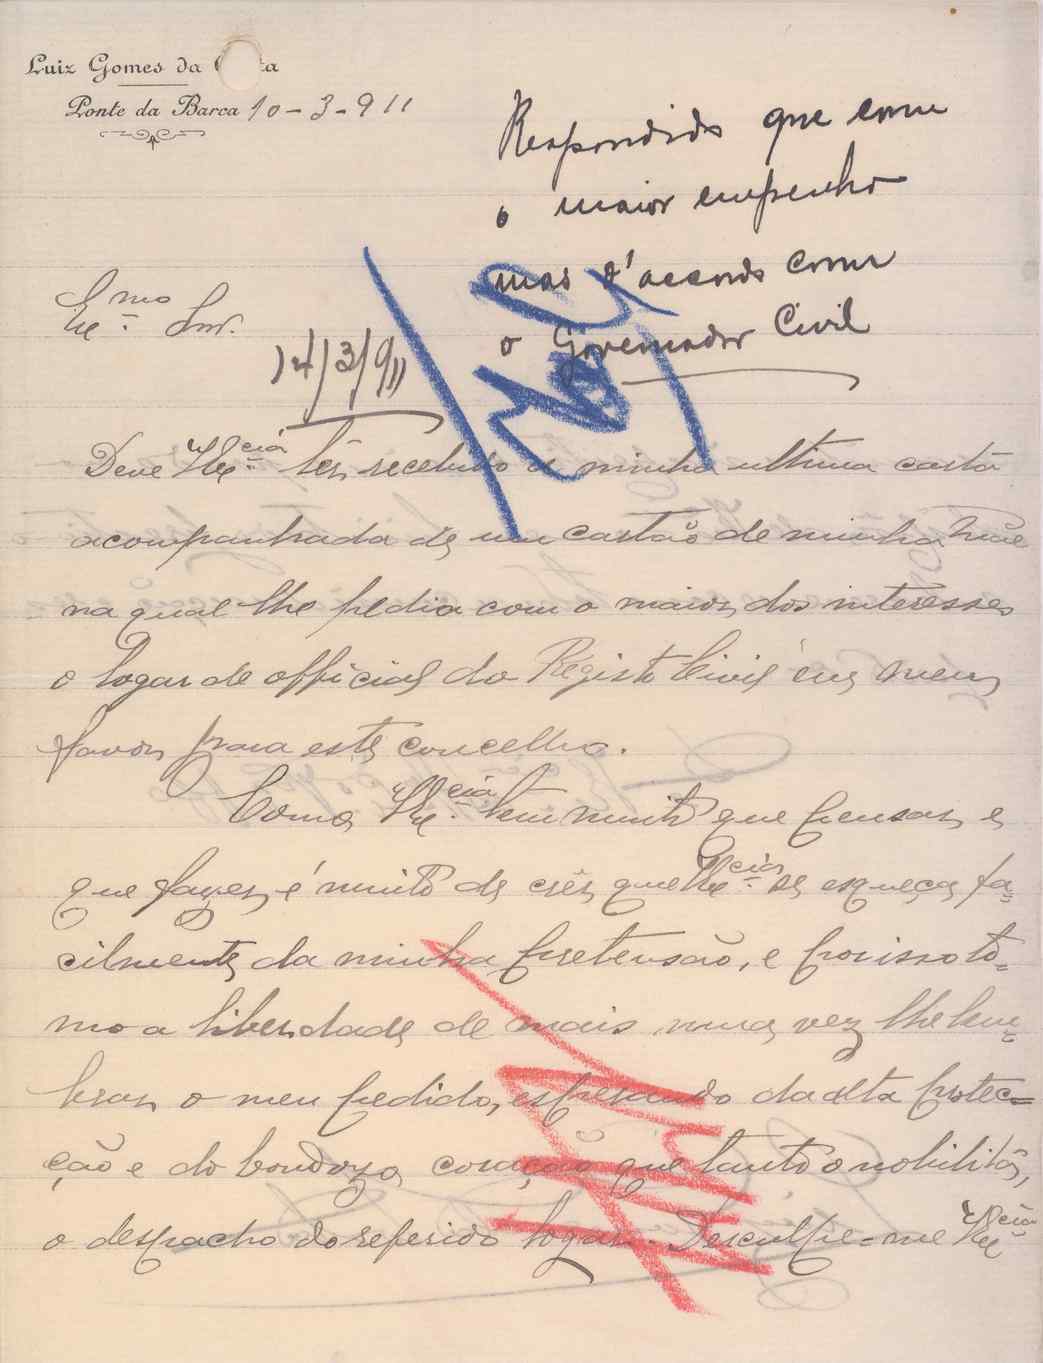 Luiz Gomes da
Ponte da Barca 10-3-911
Respondido que com
o maior empenho
mas d'accordo com
o Governador Civil
Exmo Snr.
14/3/911
Deve V. Excia ter recebido a minha ultima carta
acompanhada de um cartão de minha Mãe
na qual lhe pedia com o maior dos interesses
o logar de official do Registo Civil em meu
favor para este concelho.
Como V. Excia tem muito que pensar e
que fazer, é muito de crêr que V. Excia se esqueça fa-
cilmente da minha pretensão, e por isso to-
mo a liberdade de mais uma vez lhe lem-
brar o meu pedido, esperando da alta protec-
ção e do bondozo coração que tanto o nobilita,
o despacho do referido logar. Desculpe-me V. Excia